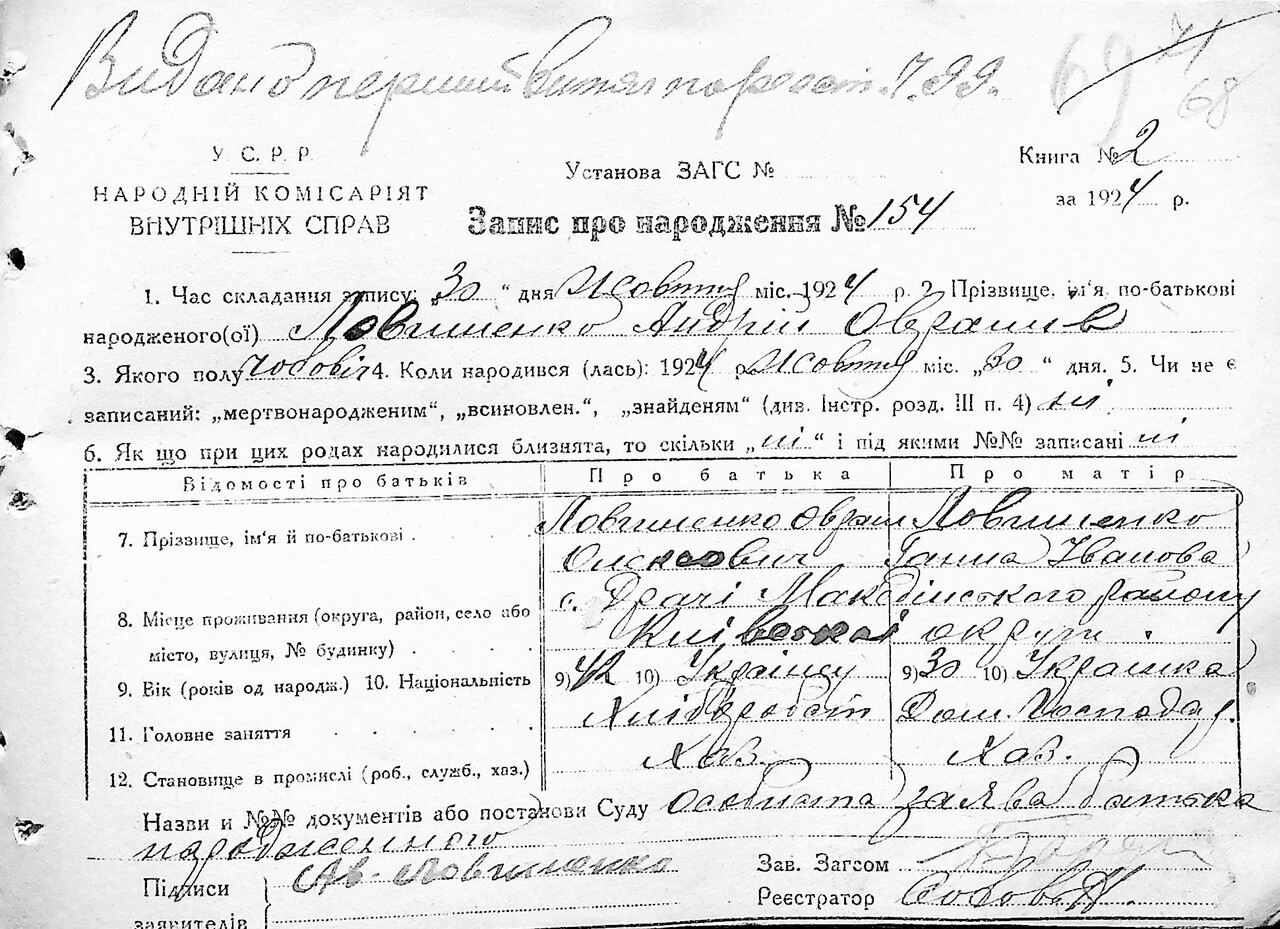 Видано перший витяг по реєст. 7. 99.
69 71
68
У. С. Р. Р.
НАРОДНІЙ КОМІСАРІЯТ
ВНУТРІШНІХ СПРАВ
Установа ЗАГС №
Книга № 2
за 1924 р.
Запис про народження № 154
1. Час складання запису: „30“ дня Жовтня міс. 1924 р. 2. Прізвище, ім'я по-батькові
народженого(ої) Ловгиненко Андрій Оврамів
3. Якого полу чоловіч 4. Коли народився (лась): 1924 р. Жовтня міс. „30“ дня. 5. Чи не є
записаний: „мертвонародженим“, „всиновлен.“, „знайденям“ (див. Інстр. розд. III п. 4) ні
6. Як що при цих родах народилися близнята, то скільки „ні“ і під якими №№ записані ні
Відомості про батьків Про батька Про матір
7. Прізвище, ім'я й по-батькові Ловгиненко Оврам Ловгиненко
Олексович Ганна Іванова
8. Місце проживання (округа, район, село або с. Драчі Македінського району
місто, вулиця, № будинку) Київської округи.
9. Вік (років од народж.) 10. Національність 9) 42 10) Українец 9) 30 10) Українка
11. Головне заняття Хлібороб Дом. Господар.
12. Становище в промислі (роб., служб., хаз.) Хаз. Хаз.
Назви и №№ документів або постанови Суду Особиста заява батька
народженного
Підписи
заявителів
Ав. Ловгиненко
Зав. Загсом
Реєстратор